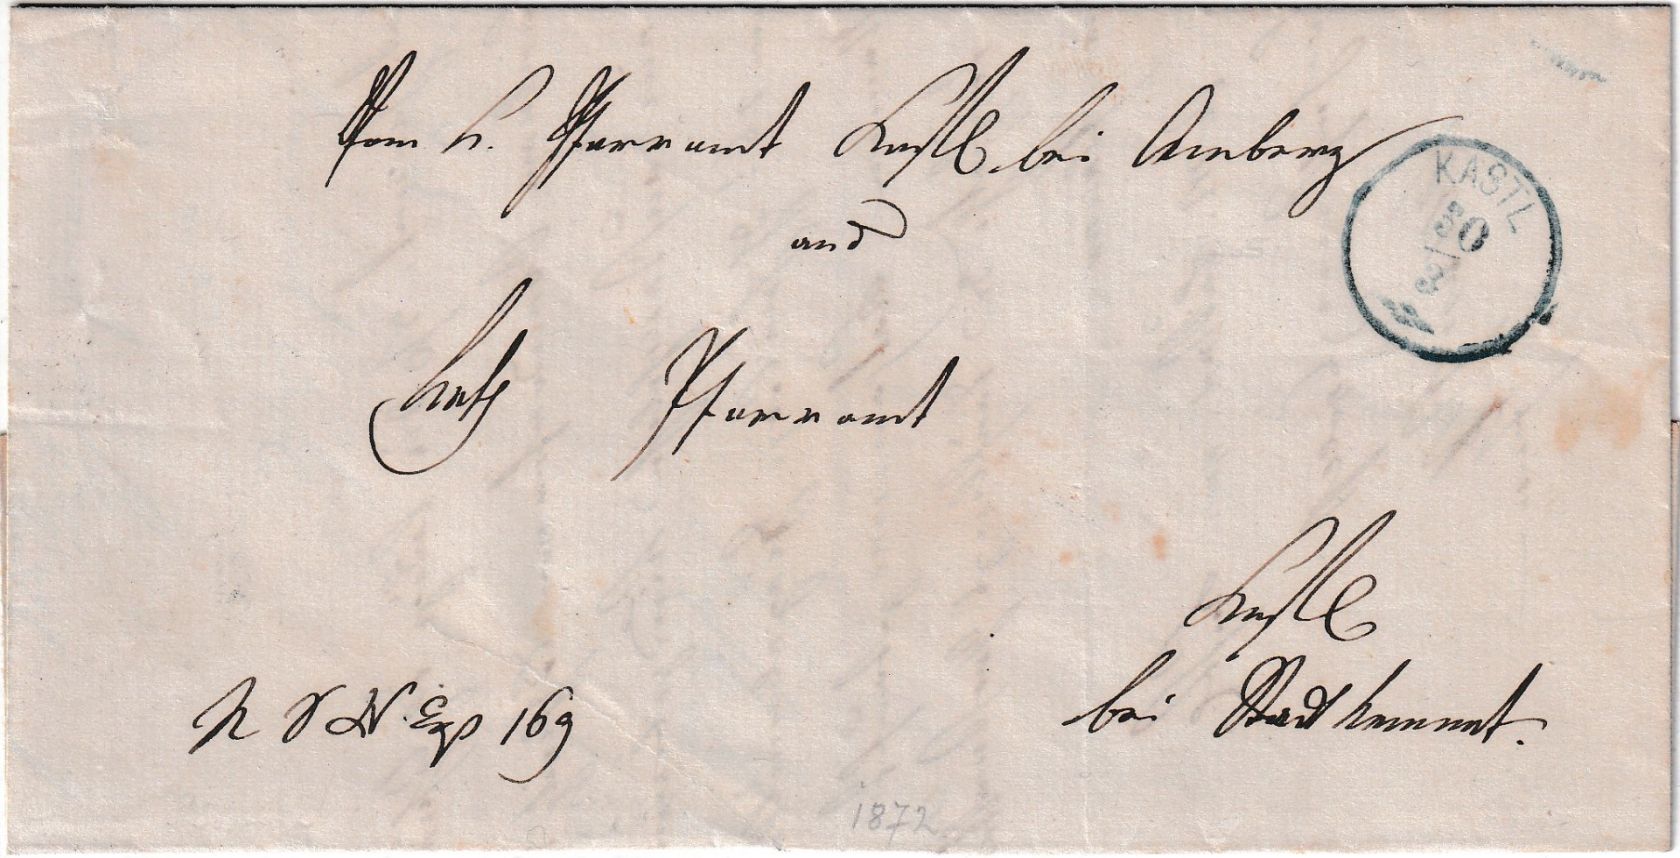 Vom k. Pfarramt Kastl bei Amberg
and
Kath Pfarramt
Kastl
bei Stadtkemnat.
R S N. Exp 169
KASTL
30
3
1872